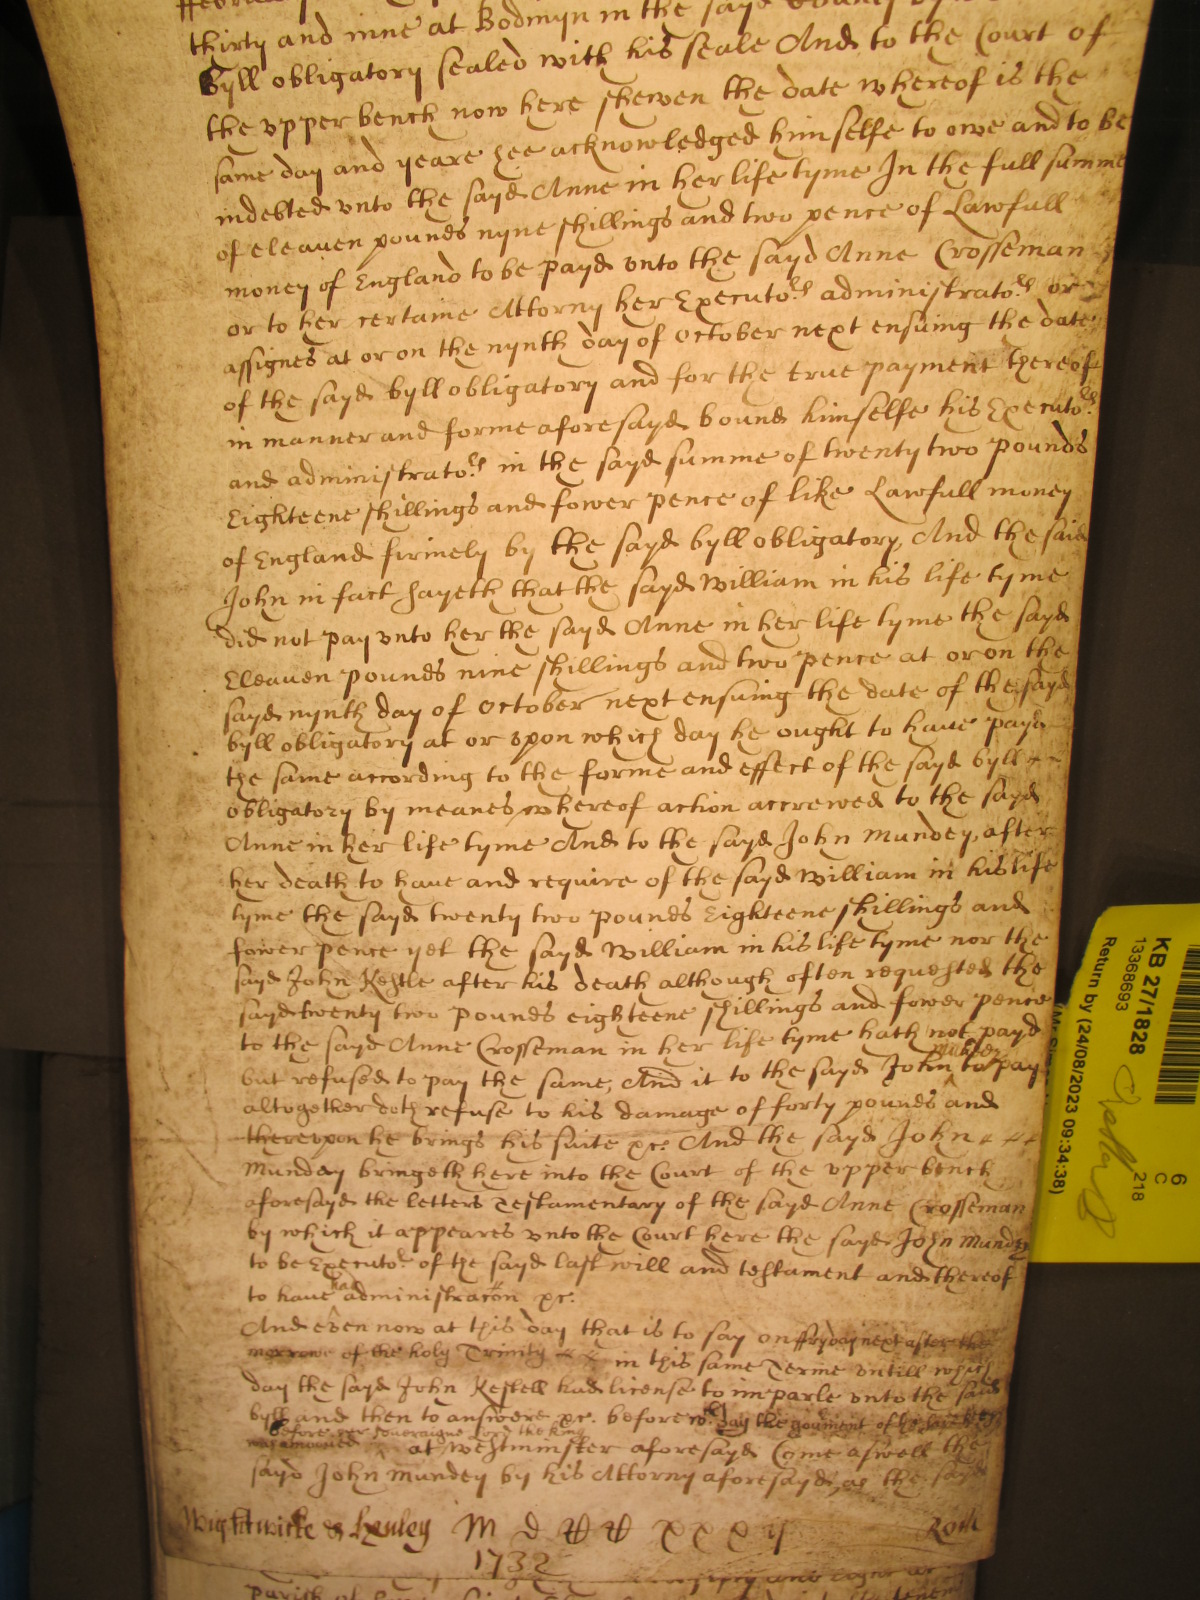 thirty and nine at Bodmyn in the sayd County by his
Byll obligatory sealed with his seale And to the Court of
the upper bench now here shewen the date whereof is the
same day and yeare hee acknowledged himselfe to owe and to be
indebted vnto the sayd Anne in her life tyme In the full summe
of eleaven pounds nyne shillings and two pence of Lawfull
money of England to be payd vnto the sayd Anne Crosseman
or to her certaine Attorny her Executors administrators or
assignes at or on the nynth day of October next ensuing the date
of the sayd byll obligatory and for the true payment thereof
in manner and forme aforesayd bound himselfe his Executors
and administrators in the sayd summe of twenty two pounds
Eighteene shillings and fower pence of like Lawfull money
of England firmely by the sayd byll obligatory, And the said
John in fact sayeth that the sayd William in his life tyme
did not pay vnto her the sayd Anne in her life tyme the sayd
Eleaven pounds nine shillings and two pence at or on the
sayd nynth day of October next ensuing the date of the sayd
byll obligatory at or vpon which day he ought to have payd
the same according to the forme and effect of the sayd byll
obligatory by meanes whereof action accrewed to the sayd
Anne in her life tyme And to the sayd John Mundey after
her death to haue and require of the sayd William in his life
tyme the sayd twenty two pounds Eighteene shillings and
fower pence yet the sayd William in his life tyme nor the
sayd John Kestle after his death although often requested the
sayd twenty two pounds eighteene shillings and fower pence
to the sayd Anne Crosseman in her life tyme hath not payd
but refused to pay the same, And it to the sayd John Mundey to pay
altogether doth refuse to his damage of forty pounds and
therevpon he brings his suite &c. And the sayd John
Munday bringeth here into the Court of the vpper bench
aforesayd the letters Testamentary of the sayd Anne Crosseman
by which it appeares vnto the Court here the sayd John Mundey
to be Executor of the sayd last will and testament and thereof
to have had administracon &c.
And even now at this day that is to say on ffryday next after the
morrowe of the holy Trinity in this same Terme vntill which
day the sayd John Kestell had license to imparle vnto the said
byll and then to answere &c. before wch day the
before our Soveraigne Lord the King
at Westminster aforesayd Come aswell the
sayd John Mundey by his Attorny aforesayd, as the sayd
Wightwicke & Henley M D xxxij Roth
1732
KB 27/1828
13368693
Return by (24/08/2023 09:34:38)
6
C
218